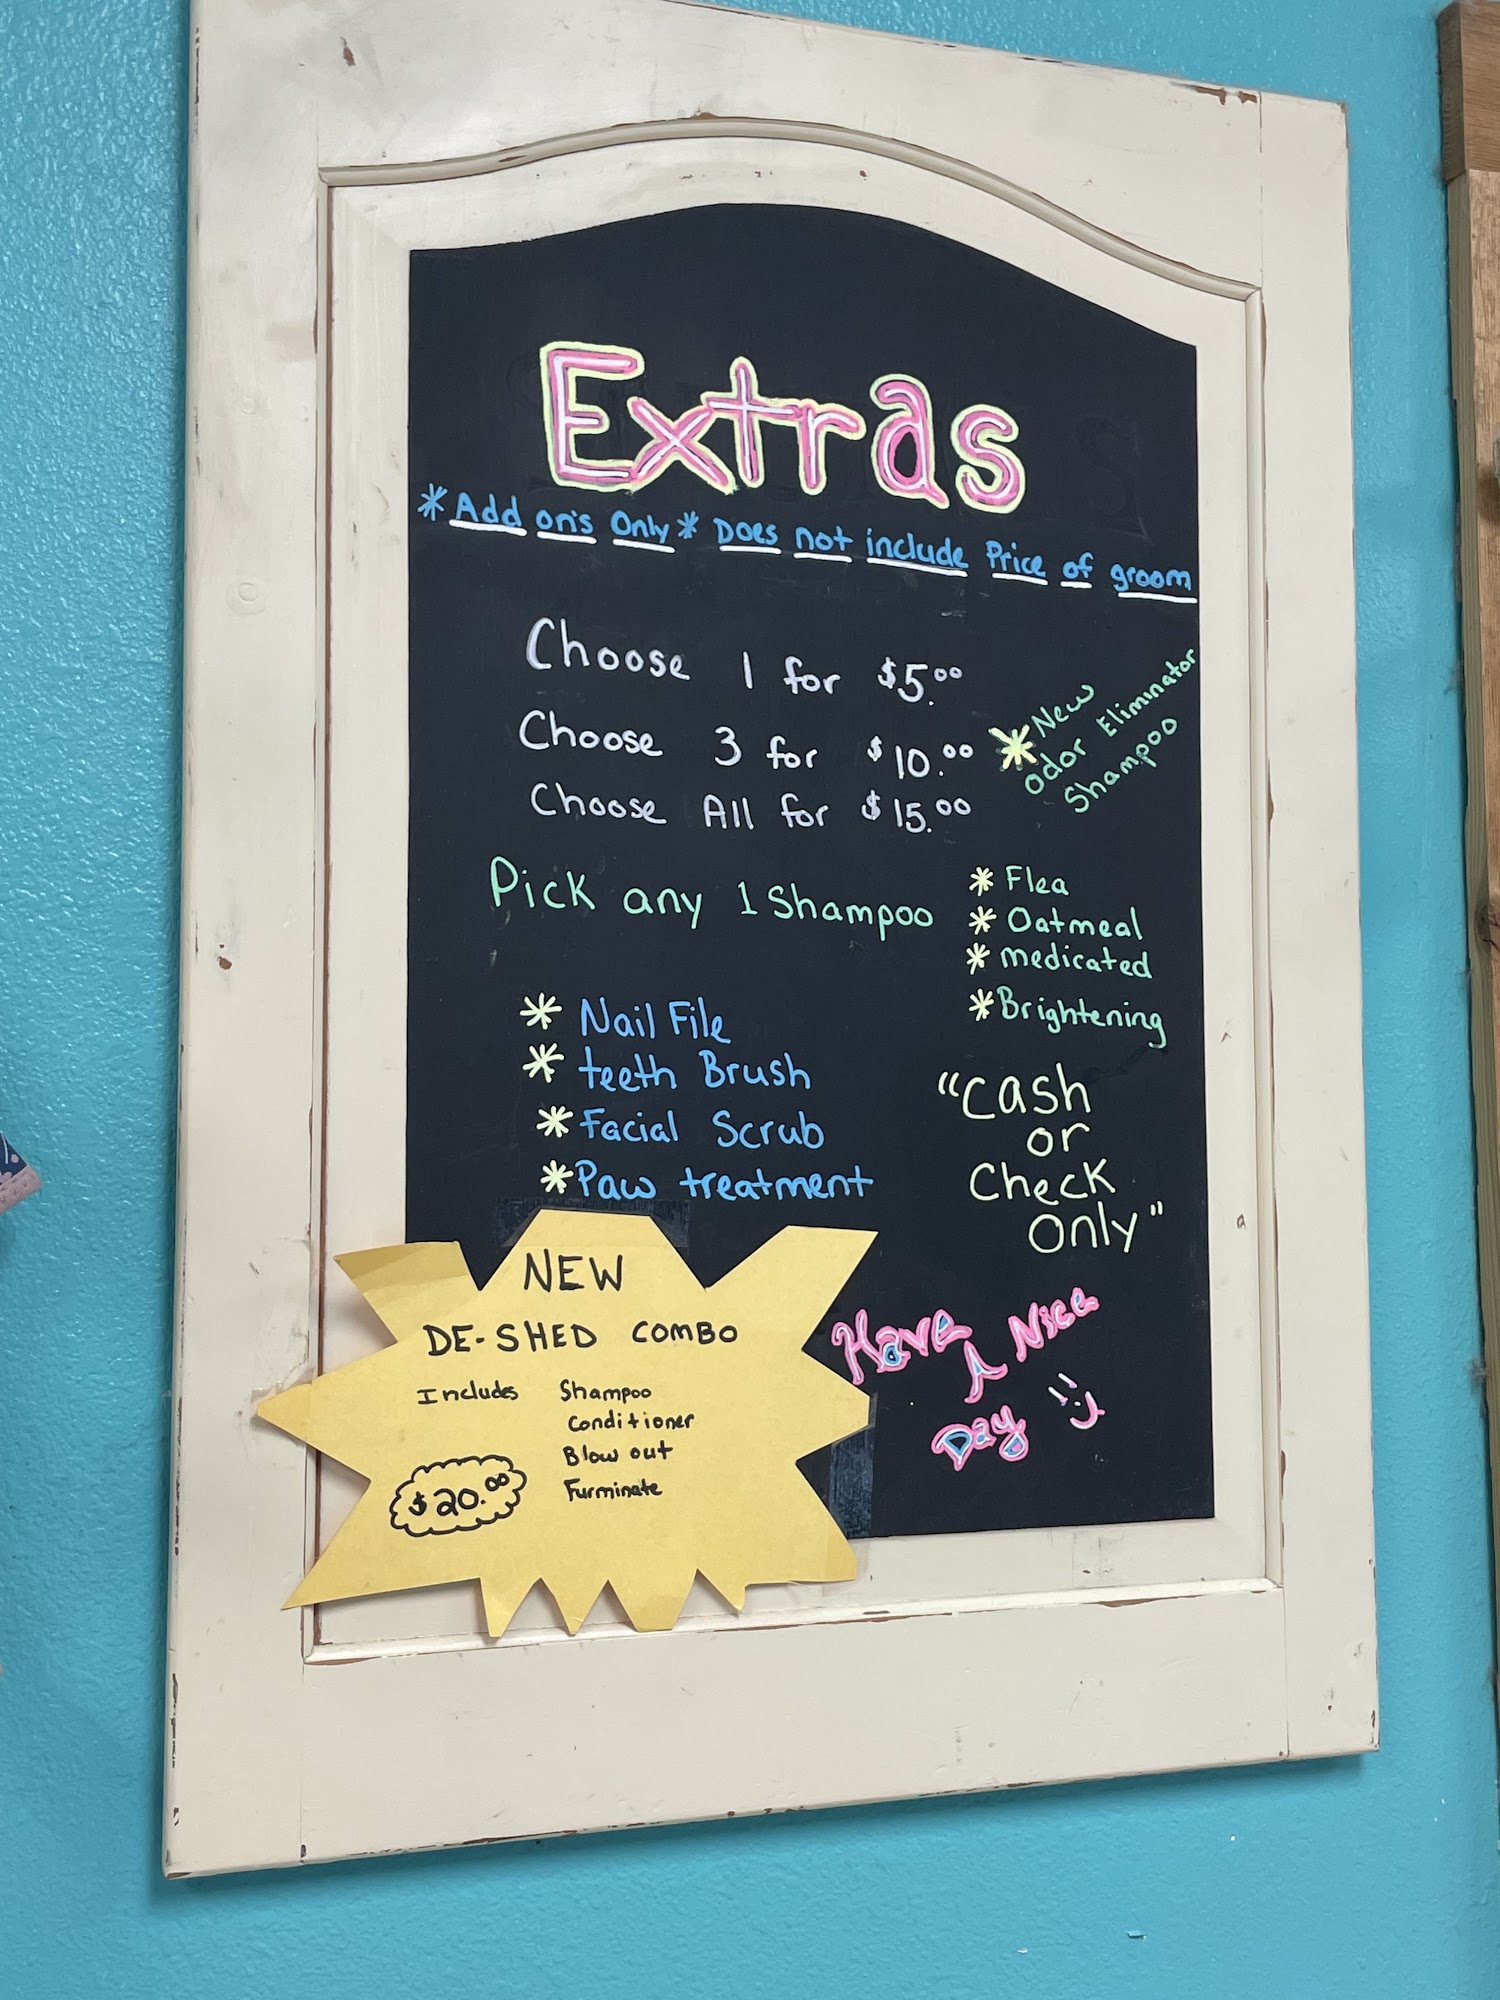 Extras
*Add on's Only* Does not include Price of groom
Choose 1 for $5.00
Choose 3 for $10.00
Choose All for $15.00
*New
odor Eliminator
Shampoo
Pick any 1 Shampoo
* Flea
* Oatmeal
* medicated
* Brightening
* Nail File
* teeth Brush
* Facial Scrub
* Paw treatment
"Cash
or
Check
Only"
NEW
DE-SHED COMBO
Includes Shampoo
Conditioner
Blow out
Furminate
$20.00
Have A Nice
Day :)